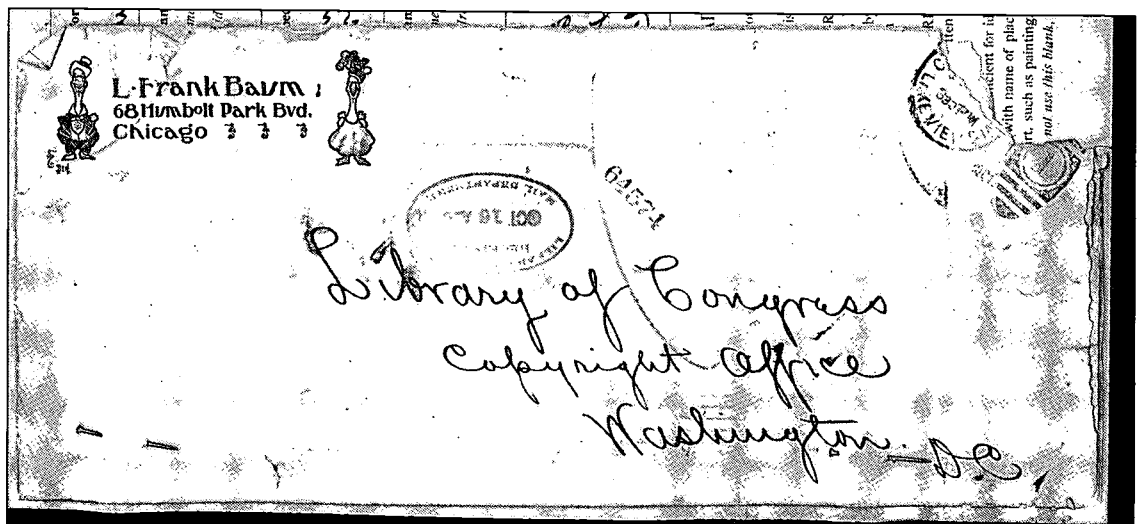 L. Frank Baum
68 Humbolt Park Bvd.
Chicago
64574
OCT 16
MAIL DEPARTMENT
Library of Congress
Copyright Office
Washington
D.C.
with name of plac
rt, such as painting
not use this blank,